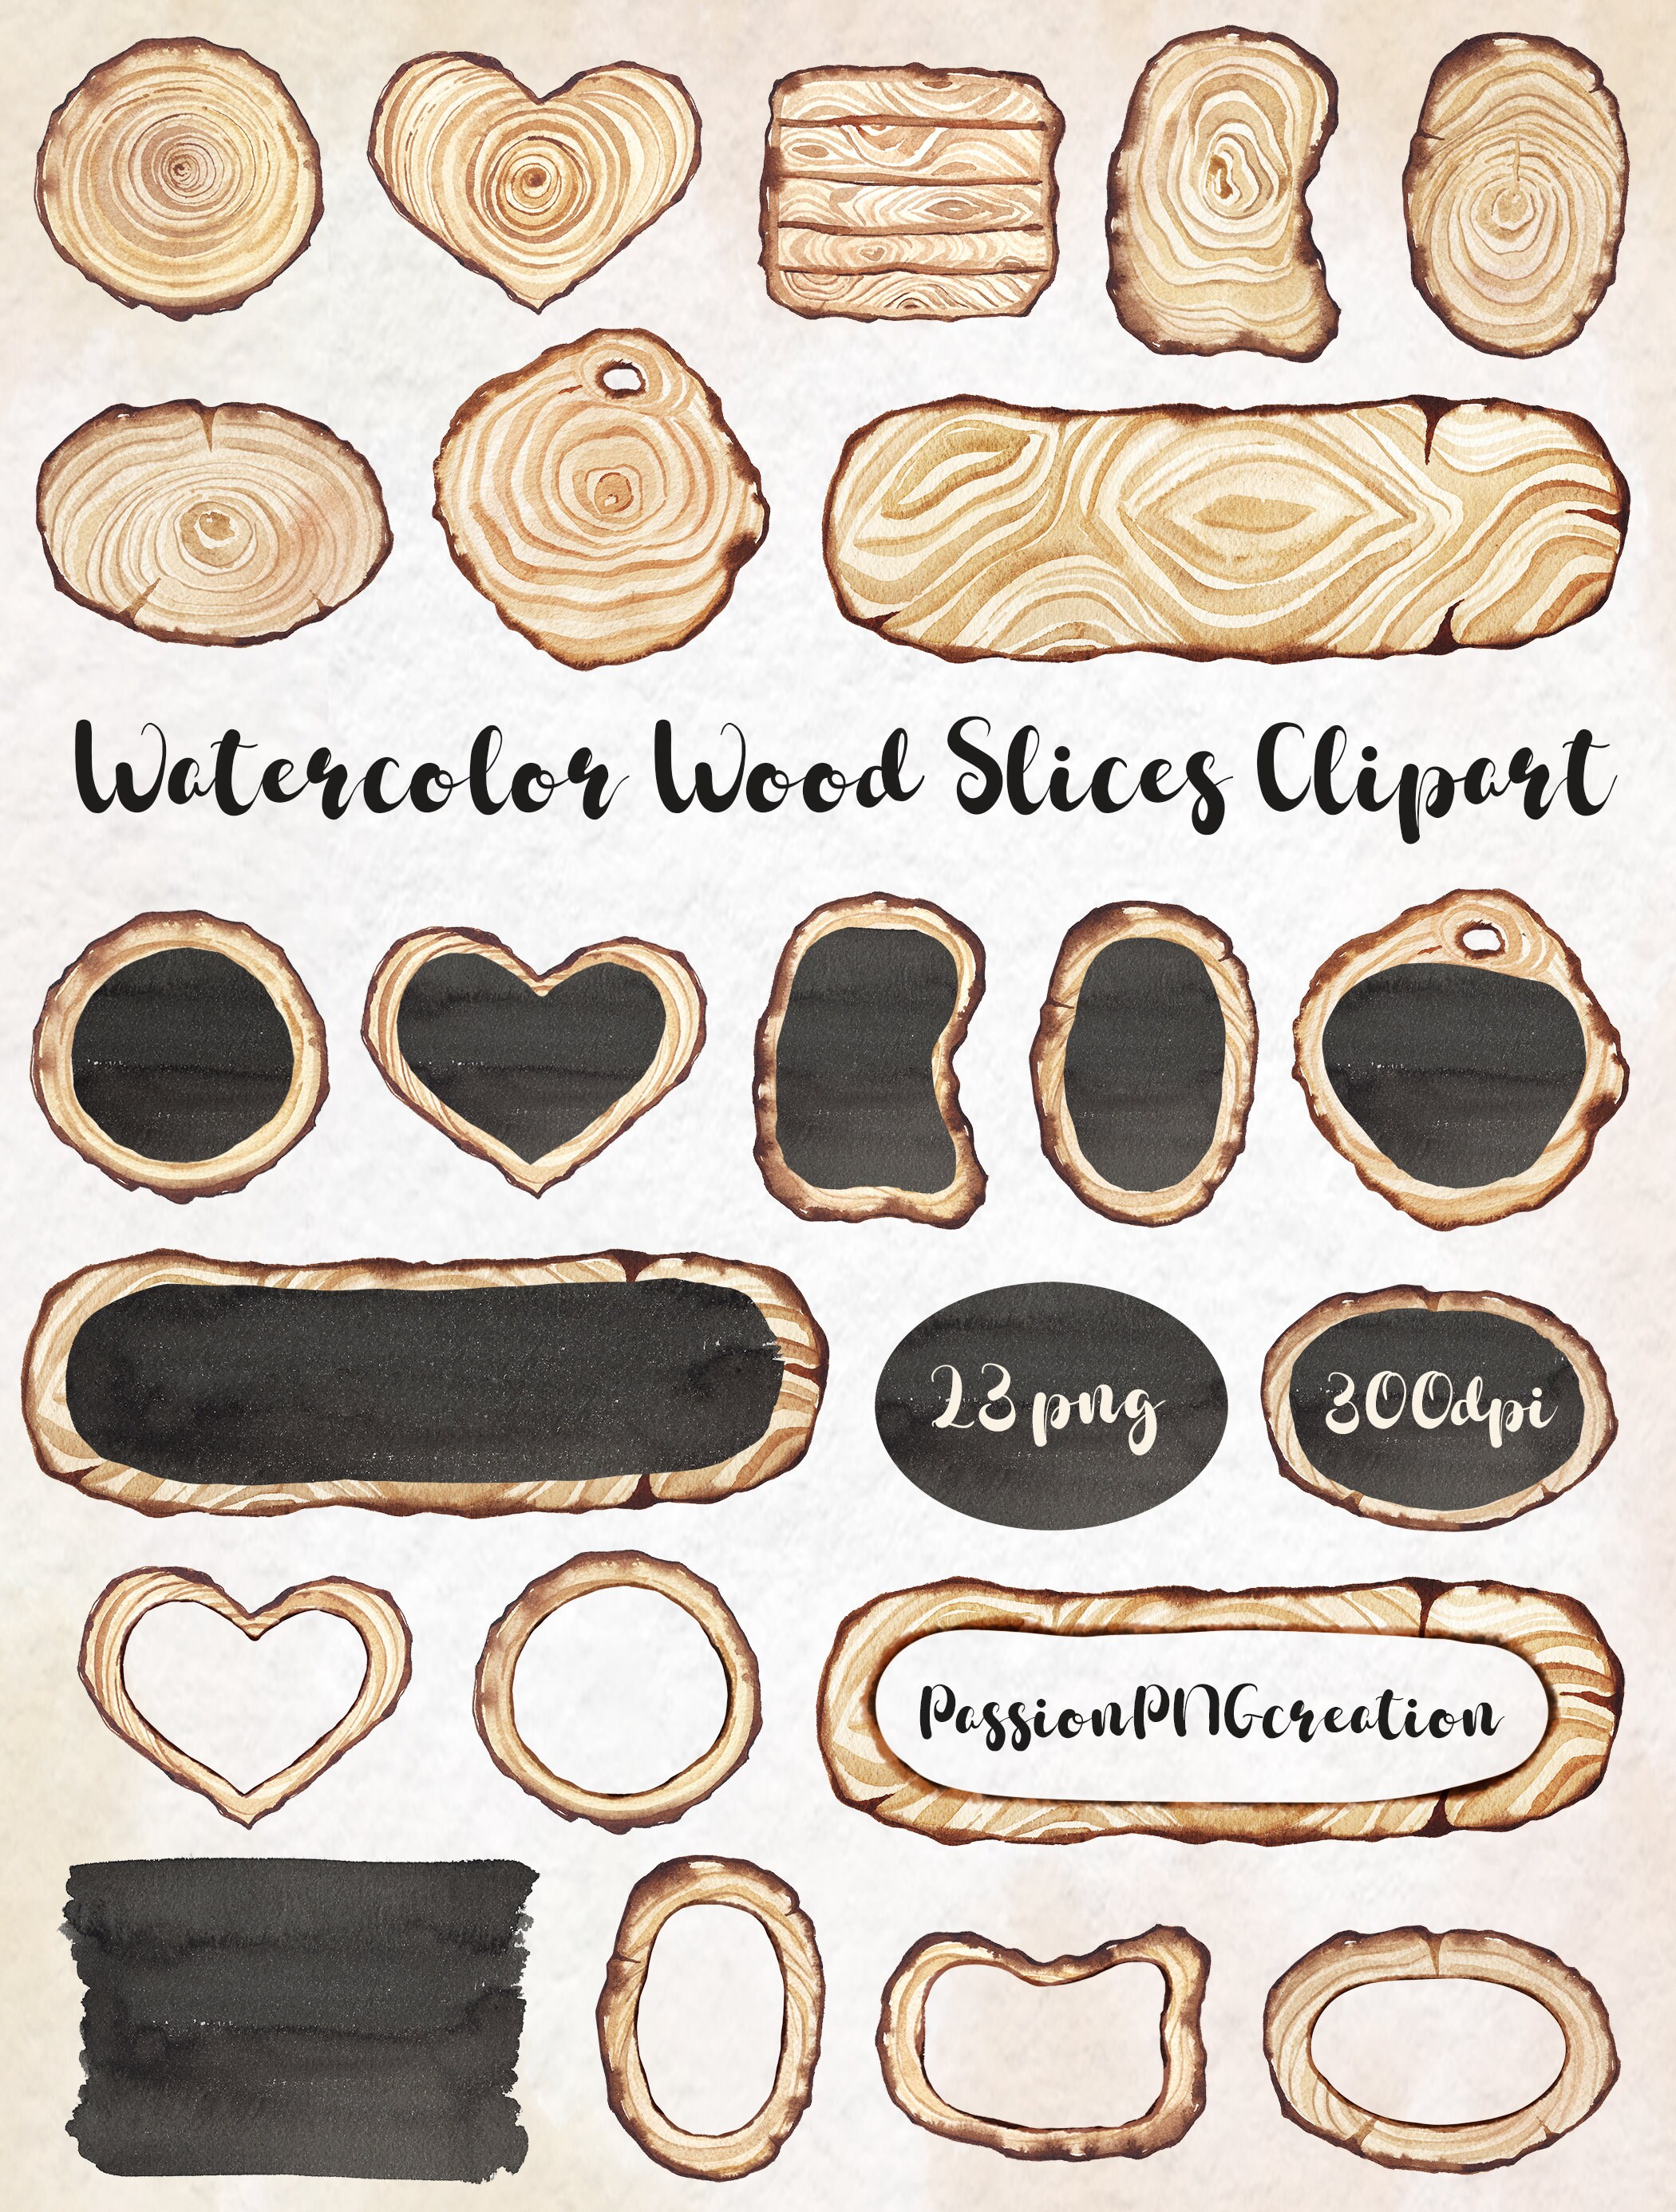 Watercolor Wood Slices Clipart
23 png
300dpi
PassionPNGcreation